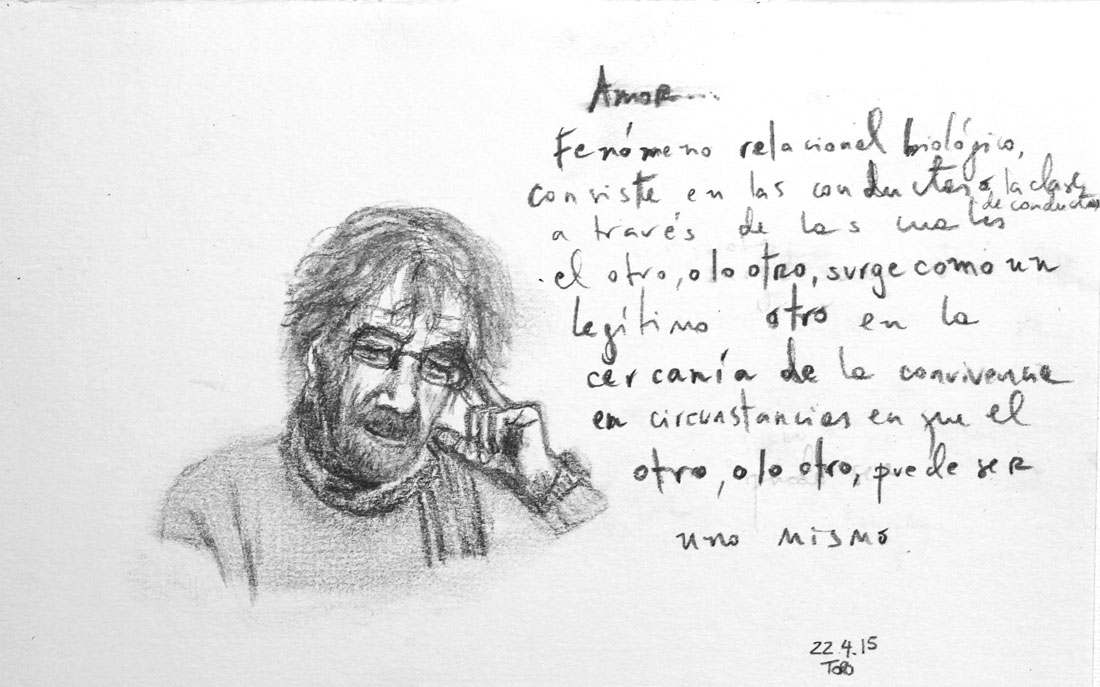 Amor...
Fenómeno relacional biológico,
consiste en las conductas o la clase
de conductas
a través de las cuales
el otro, o lo otro, surge como un
legítimo otro en la
cercanía de la convivencia
en circunstancias en que el
otro, o lo otro, puede ser
uno mismo
22.4.15
TORO